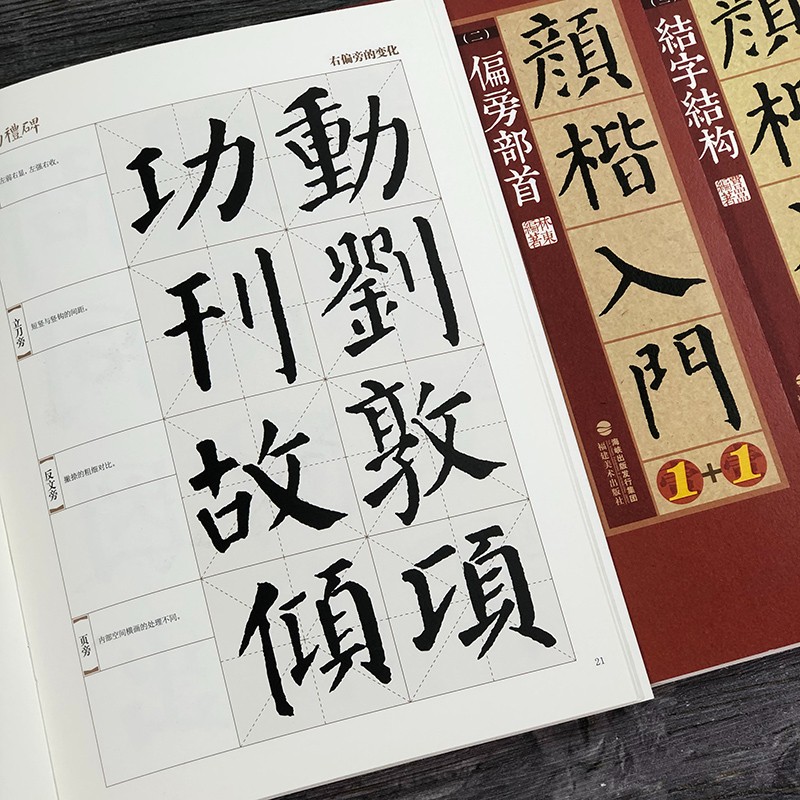 右偏旁的变化
禮碑
左弱右显,左强右收。
功 動
立刀旁
短竖与竖钩的间距。
刊 劉
反文旁
撇捺的粗细对比。
故 敦
页旁
内部空间横画的处理不同。
傾 項
21
(二)
偏旁部首
顔楷入門
海峡出版发行集团
福建美术出版社
1+1
結字結构
顔楷